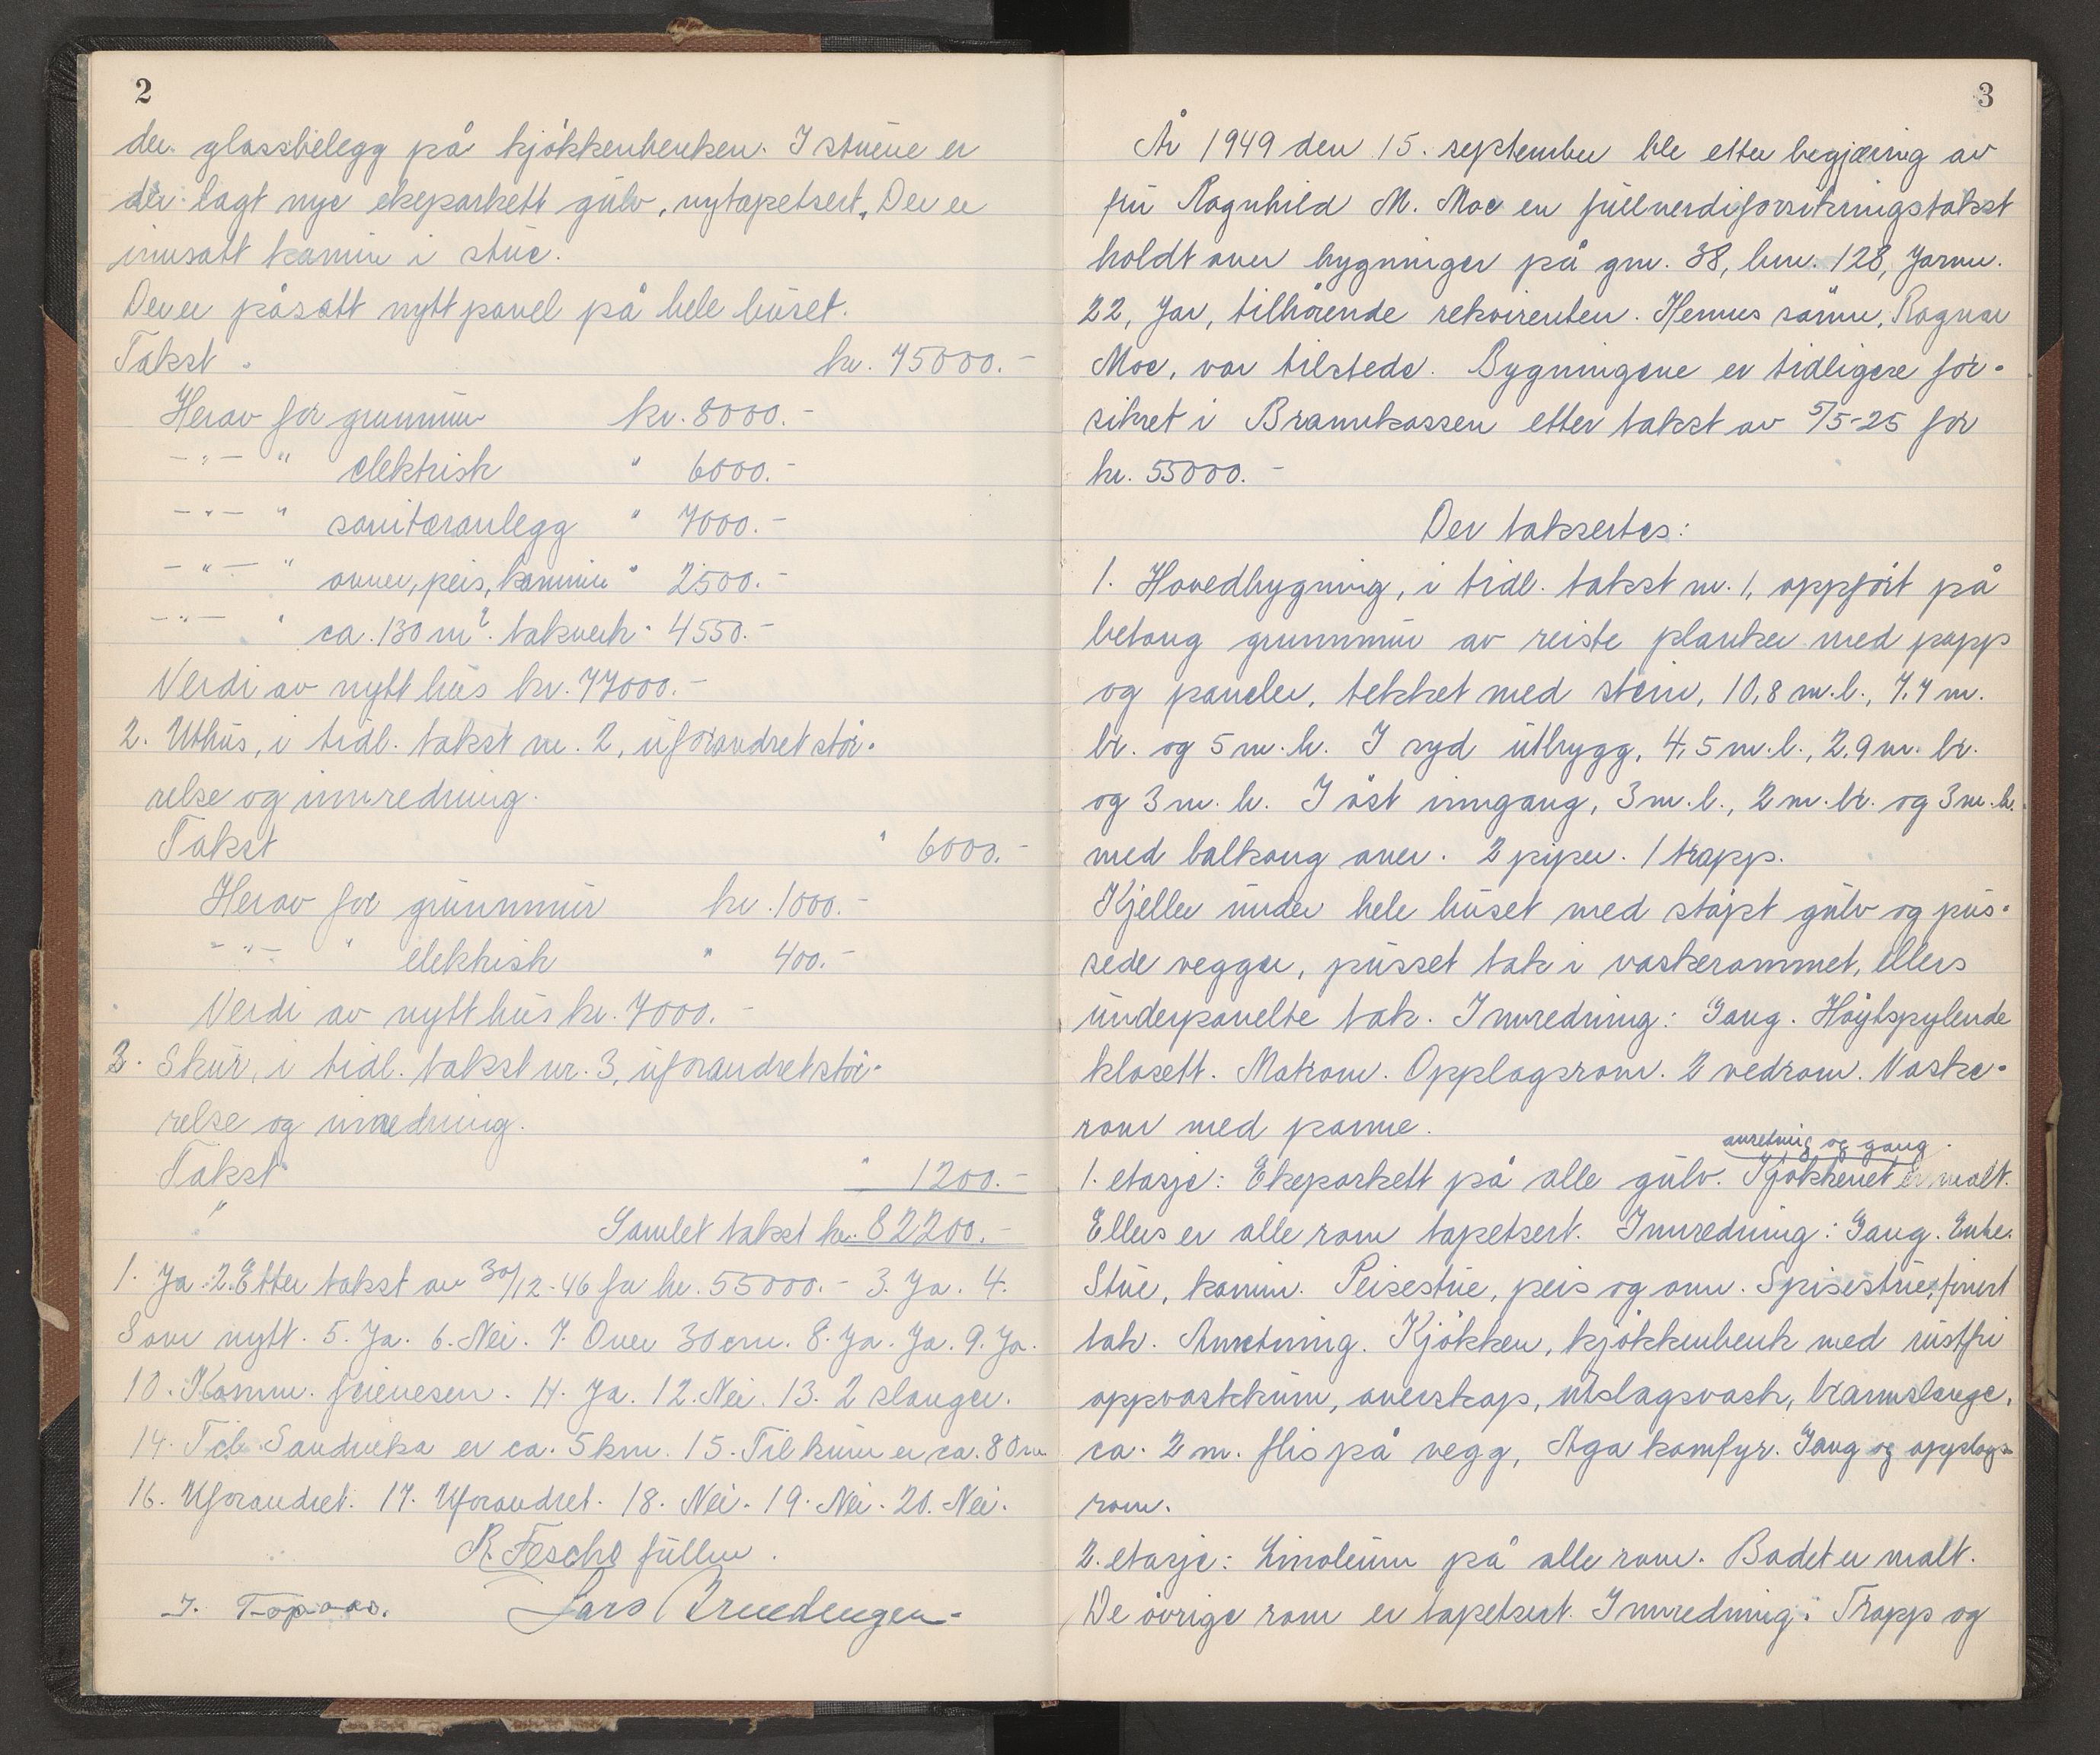 2
der glassbelegg på kjøkkenbenken. I stuene er
der lagt nye ekeparkett gulv, nytapetsert. Der er
innsatt kamin i stue.
Der er påsatt nytt panel på hele huset.
Takst kr. 75000.-
Herav for grunnmur kr. 8000.-
-"- " elektrisk " 6000.-
-"- " sanitæranlegg " 7000.-
-"- " ovner, peis, kamin " 2500.-
-"- " ca. 130 m². takverk " 4550.-
Verdi av nytt hus kr. 77000.-
2. Uthus, i tidl. takst nr. 2, uforandret stør-
relse og innredning.
Takst " 6000.-
Herav for grunnmur kr. 1000.-
-"- " elektrisk " 400.-
Verdi av nytt hus kr. 7000.-
3. Skur, i tidl. takst nr. 3, uforandret stør-
relse og innredning.
Takst " 1200.-
Samlet takst kr. 82200.-
1. Ja. 2. Etter takst av 30/12-46 for kr. 55000.- 3. Ja. 4.
Som nytt. 5. Ja. 6. Nei. 7. Over 30 cm. 8. Ja. Ja. 9. Ja.
10. Komm. feievesen. 11. Ja. 12. Nei. 13. 2 slanger.
14. Til Sandvika er ca. 5 km. 15. Til kum er ca. 80 m
16. Uforandret. 17. Uforandret. 18. Nei. 19. Nei. 20. Nei.
R. Fescho fullm.
J. Topaas. Lars
3
År 1949 den 15. september ble etter begjæring av
fru Ragnhild M. Moe en fullverdiforsikringstakst
holdt over bygninger på gnr. 38, bnr. 128, Jarnv.
22, Jar, tilhørende rekvirenten. Hennes sønn, Ragnar
Moe, var tilstede. Bygningene er tidligere for-
sikret i Brannkassen etter takst av 5/5-25 for
kr. 55000.-
Der taksertes:
1. Hovedbygning, i tidl. takst nr. 1, oppført på
betong grunnmur av reiste planker med papp
og paneler, tekket med stein, 10,8 m. l., 7,7 m.
br. og 5 m. h. I syd utbygg, 4,5 m. l., 2,9 m. br.
og 3 m. h. I øst inngang, 3 m. l., 2 m. br. og 3 m. h.
med balkong over. 2 piper. 1 trapp.
Kjeller under hele huset med støpt gulv og pus-
sede vegger, pusset tak i vaskerommet, ellers
underpanelte tak. Innredning: Gang. Høytspylende
klosett. Matrom. Opplagsrom. 2 vedrom. Vaske-
rom med panne.
anretning og gang
1. etasje: Ekeparkett på alle gulv. Kjøkkenet er malt.
Ellers er alle rom tapetsert. Innredning: Gang. Entre.
Stue, kamin. Peisestue, peis og ovn. Spisestue, finert
tak. Anretning. Kjøkken, kjøkkenbenk med rustfri
oppvaskkum, overskap, utslagsvask, brannslange,
ca. 2 m. flis på vegg, Aga komfyr. Gang og opplags-
rom.
2. etasje: Linoleum på alle rom. Badet er malt.
De øvrige rom er tapetsert. Innredning: Trapp og